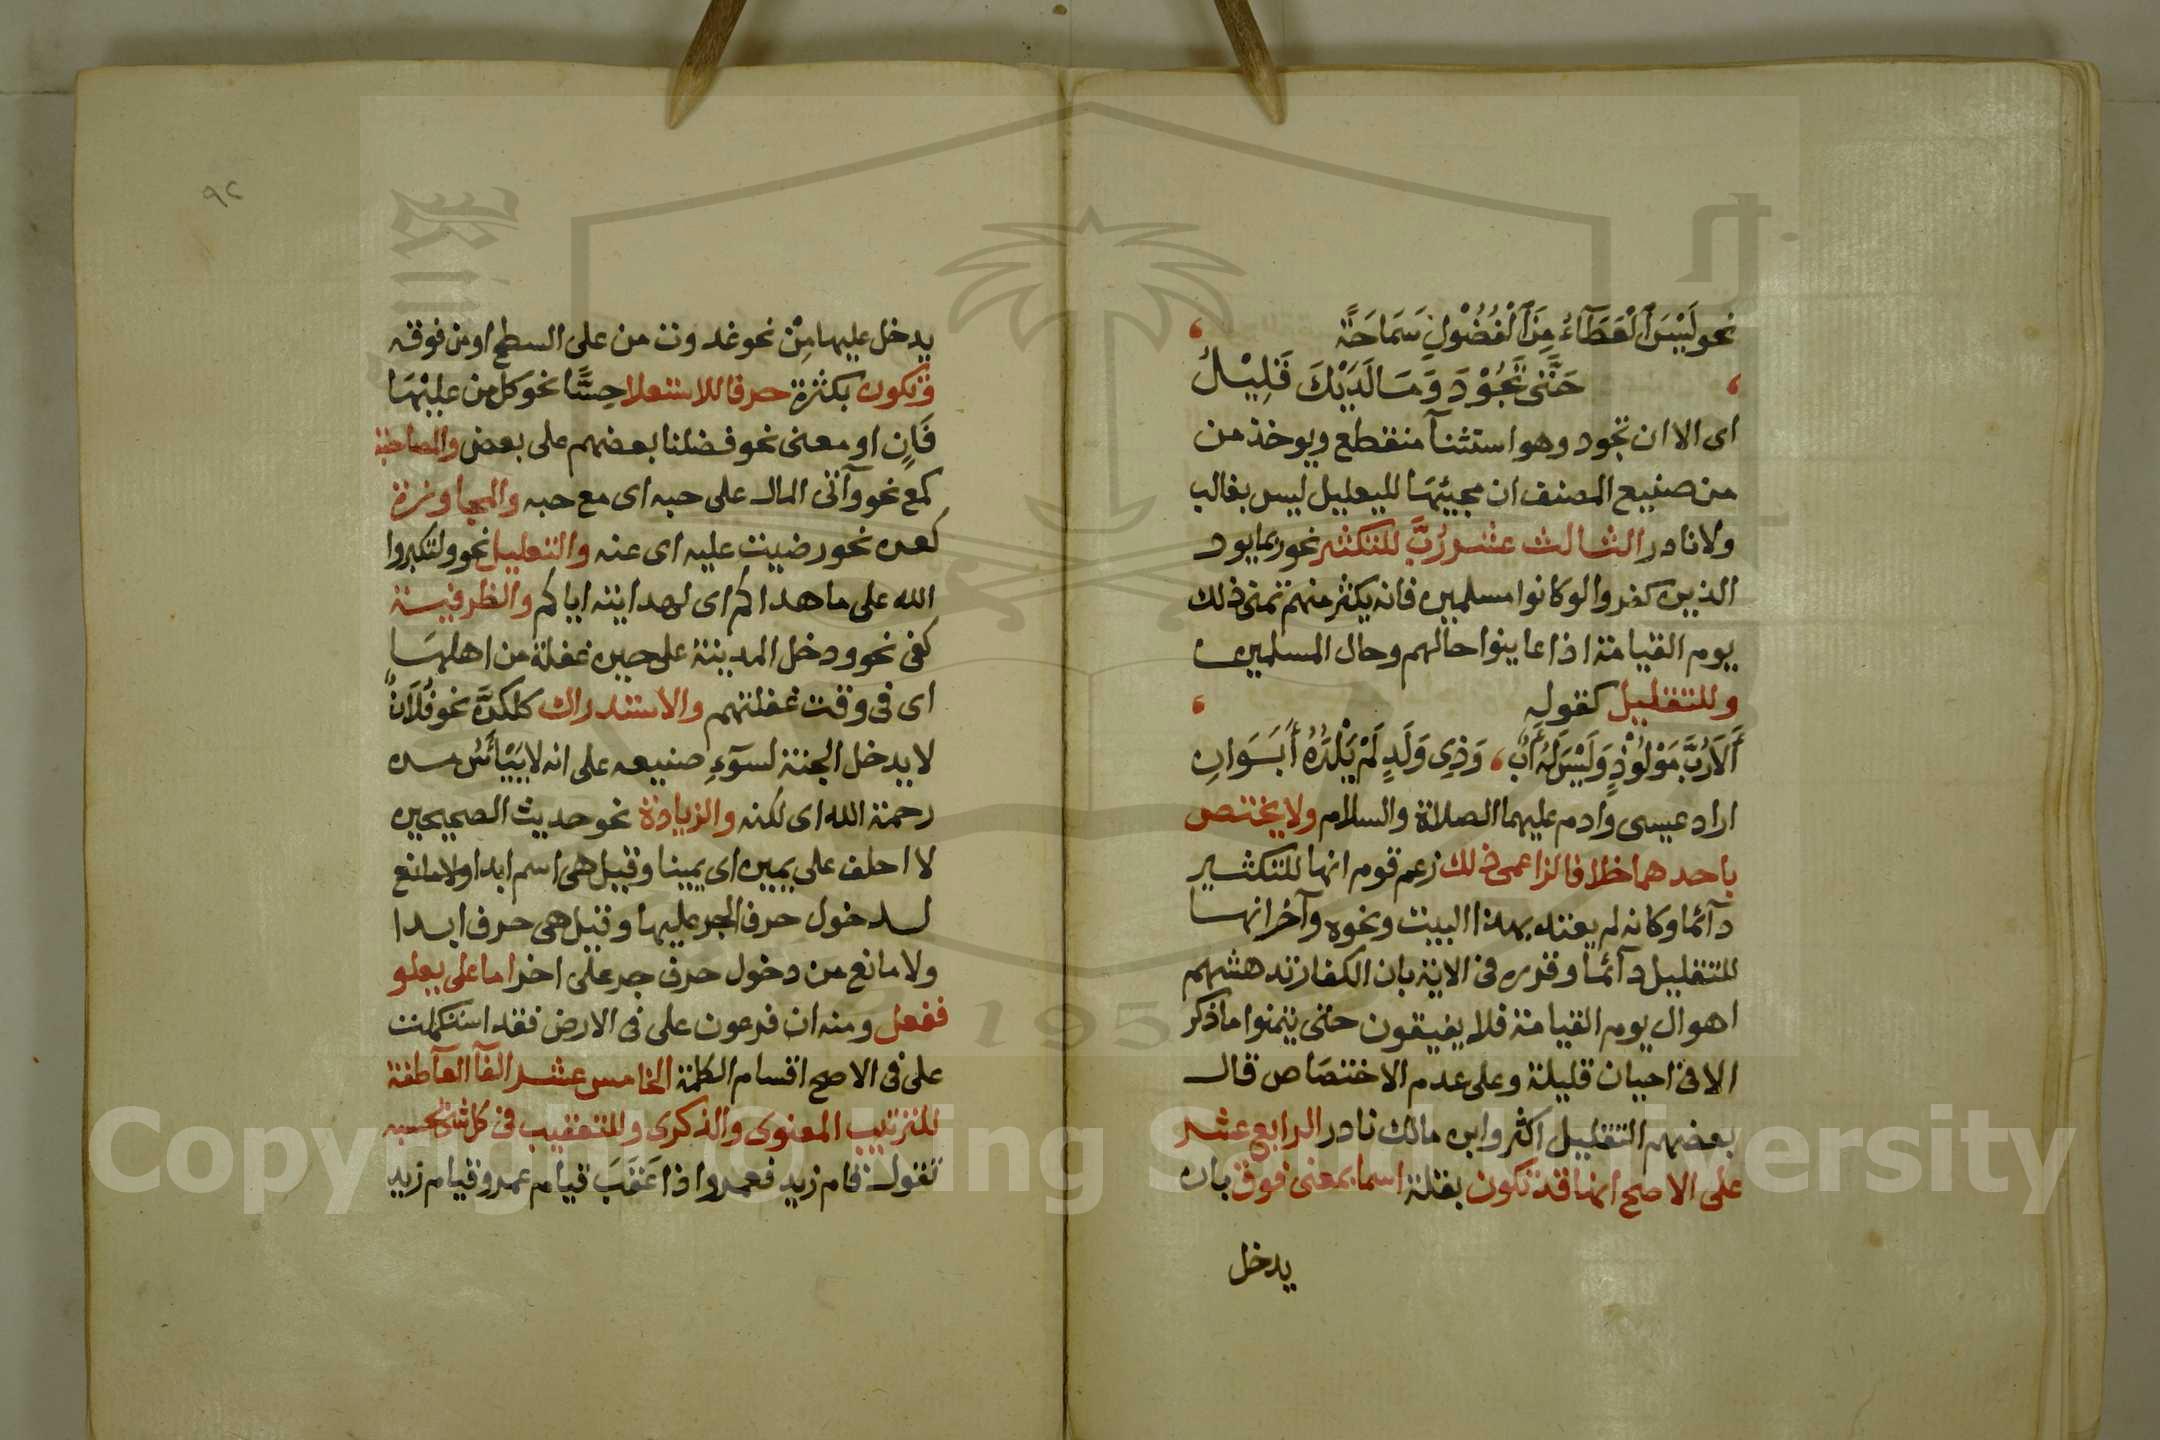 نحو لَيْسَ الْعَطَآءُ مِنَ الْفُضُوْلِ سَمَاحَةً
حَتَّى تَجُوْدَ وَمَا لَدَيْكَ قَلِيْلُ
اى الا ان تجود وهو استثنآ منقطع ويوخذ من
من صنيع المصنف ان مجيئهَا لليعليل ليس بغالب
ولا نادر الثالث عشر رُبَّ للتكثير نحو ربما يود
الذين كفروا لو كانوا مسلمين فانه يكثر منهم تمنى ذلك
يوم القيامة اذا عاينوا حالهم وحال المسلمين
وللتقليل كقوله
أَلاَ رُبَّ مَوْلُوْدٍ وَلَيْسَ لَهُ أَبٌ، وَذِى وَلَدٍ لَمْ يَلْدَهُ أَبَوَانِ
اراد عيسى وادم عليهما الصلاة والسلام ولا يختص
باحدهما خلافا لزاعمى ذلك زعم قوم انها للتكثير
دآئما وكانه لم يعتد بهذا البيت ونحوه وآخر انها
للتقليل دآئما وقرره فى الاية بان الكفار تدهشهم
اهوال يوم القيامة فلا يفيقون حتى يتمنوا ما ذكر
الا فى احيان قليلة وعلى عدم الاختصاص قال
بعضهم التقليل اكثر وابن مالك نادر الرابع عشر
على الاصح انها قد تكون بقلة اسما بمعنى فوق بان
يدخل
٩٢
يدخل عليها مِنْ نحو غدوت من على السطح او من فوقه
وتكون بكثرة حرفا للاستعلا حِسًّا نحو كل من عليْهَا
فَانٍ او معنى نحو فضلنا بعضهم على بعض والمصاحبة
كمع نحو وآتى المال على حبه اى مع حبه والمجاوزة
كعن نحو رضيت عليه اى عنه والتعليل نحو ولتكبروا
الله على ما هداكم اى لهدايته اياكم والظرفية
كفى نحو ودخل المدينة على حين غفلة من اهلهَا
اى فى وقت غفلتهم والاستدراك كلكنَّ نحو فُلَانٌ
لا يدخل الجنة لسوٓءِ صنيعه على انه لا يَيْأَسُ من
رحمة الله اى لكنه والزيادة نحو حديث الصحيحين
لا احلف على يمين اى يمينا وقيل هى اسم ابدا ولا مانع
لدخول حرف الجر عليها وقيل هى حرف ابدا
ولا مانع من دخول حرف جر على اخر اما على يعلو
ففعل ومنه ان فرعون على فى الارض فقد استكملت
على فى الاصح اقسام الكلمة الخامس عشر الفآ العآطفة
للترتيب المعنوى والذكرى وللتعقيب فى كل شئ بحسبه
تقول قام زيد فعمرو اذا عَقَبَ قيام عمرو قيام زيد
Copyright © King Saud University